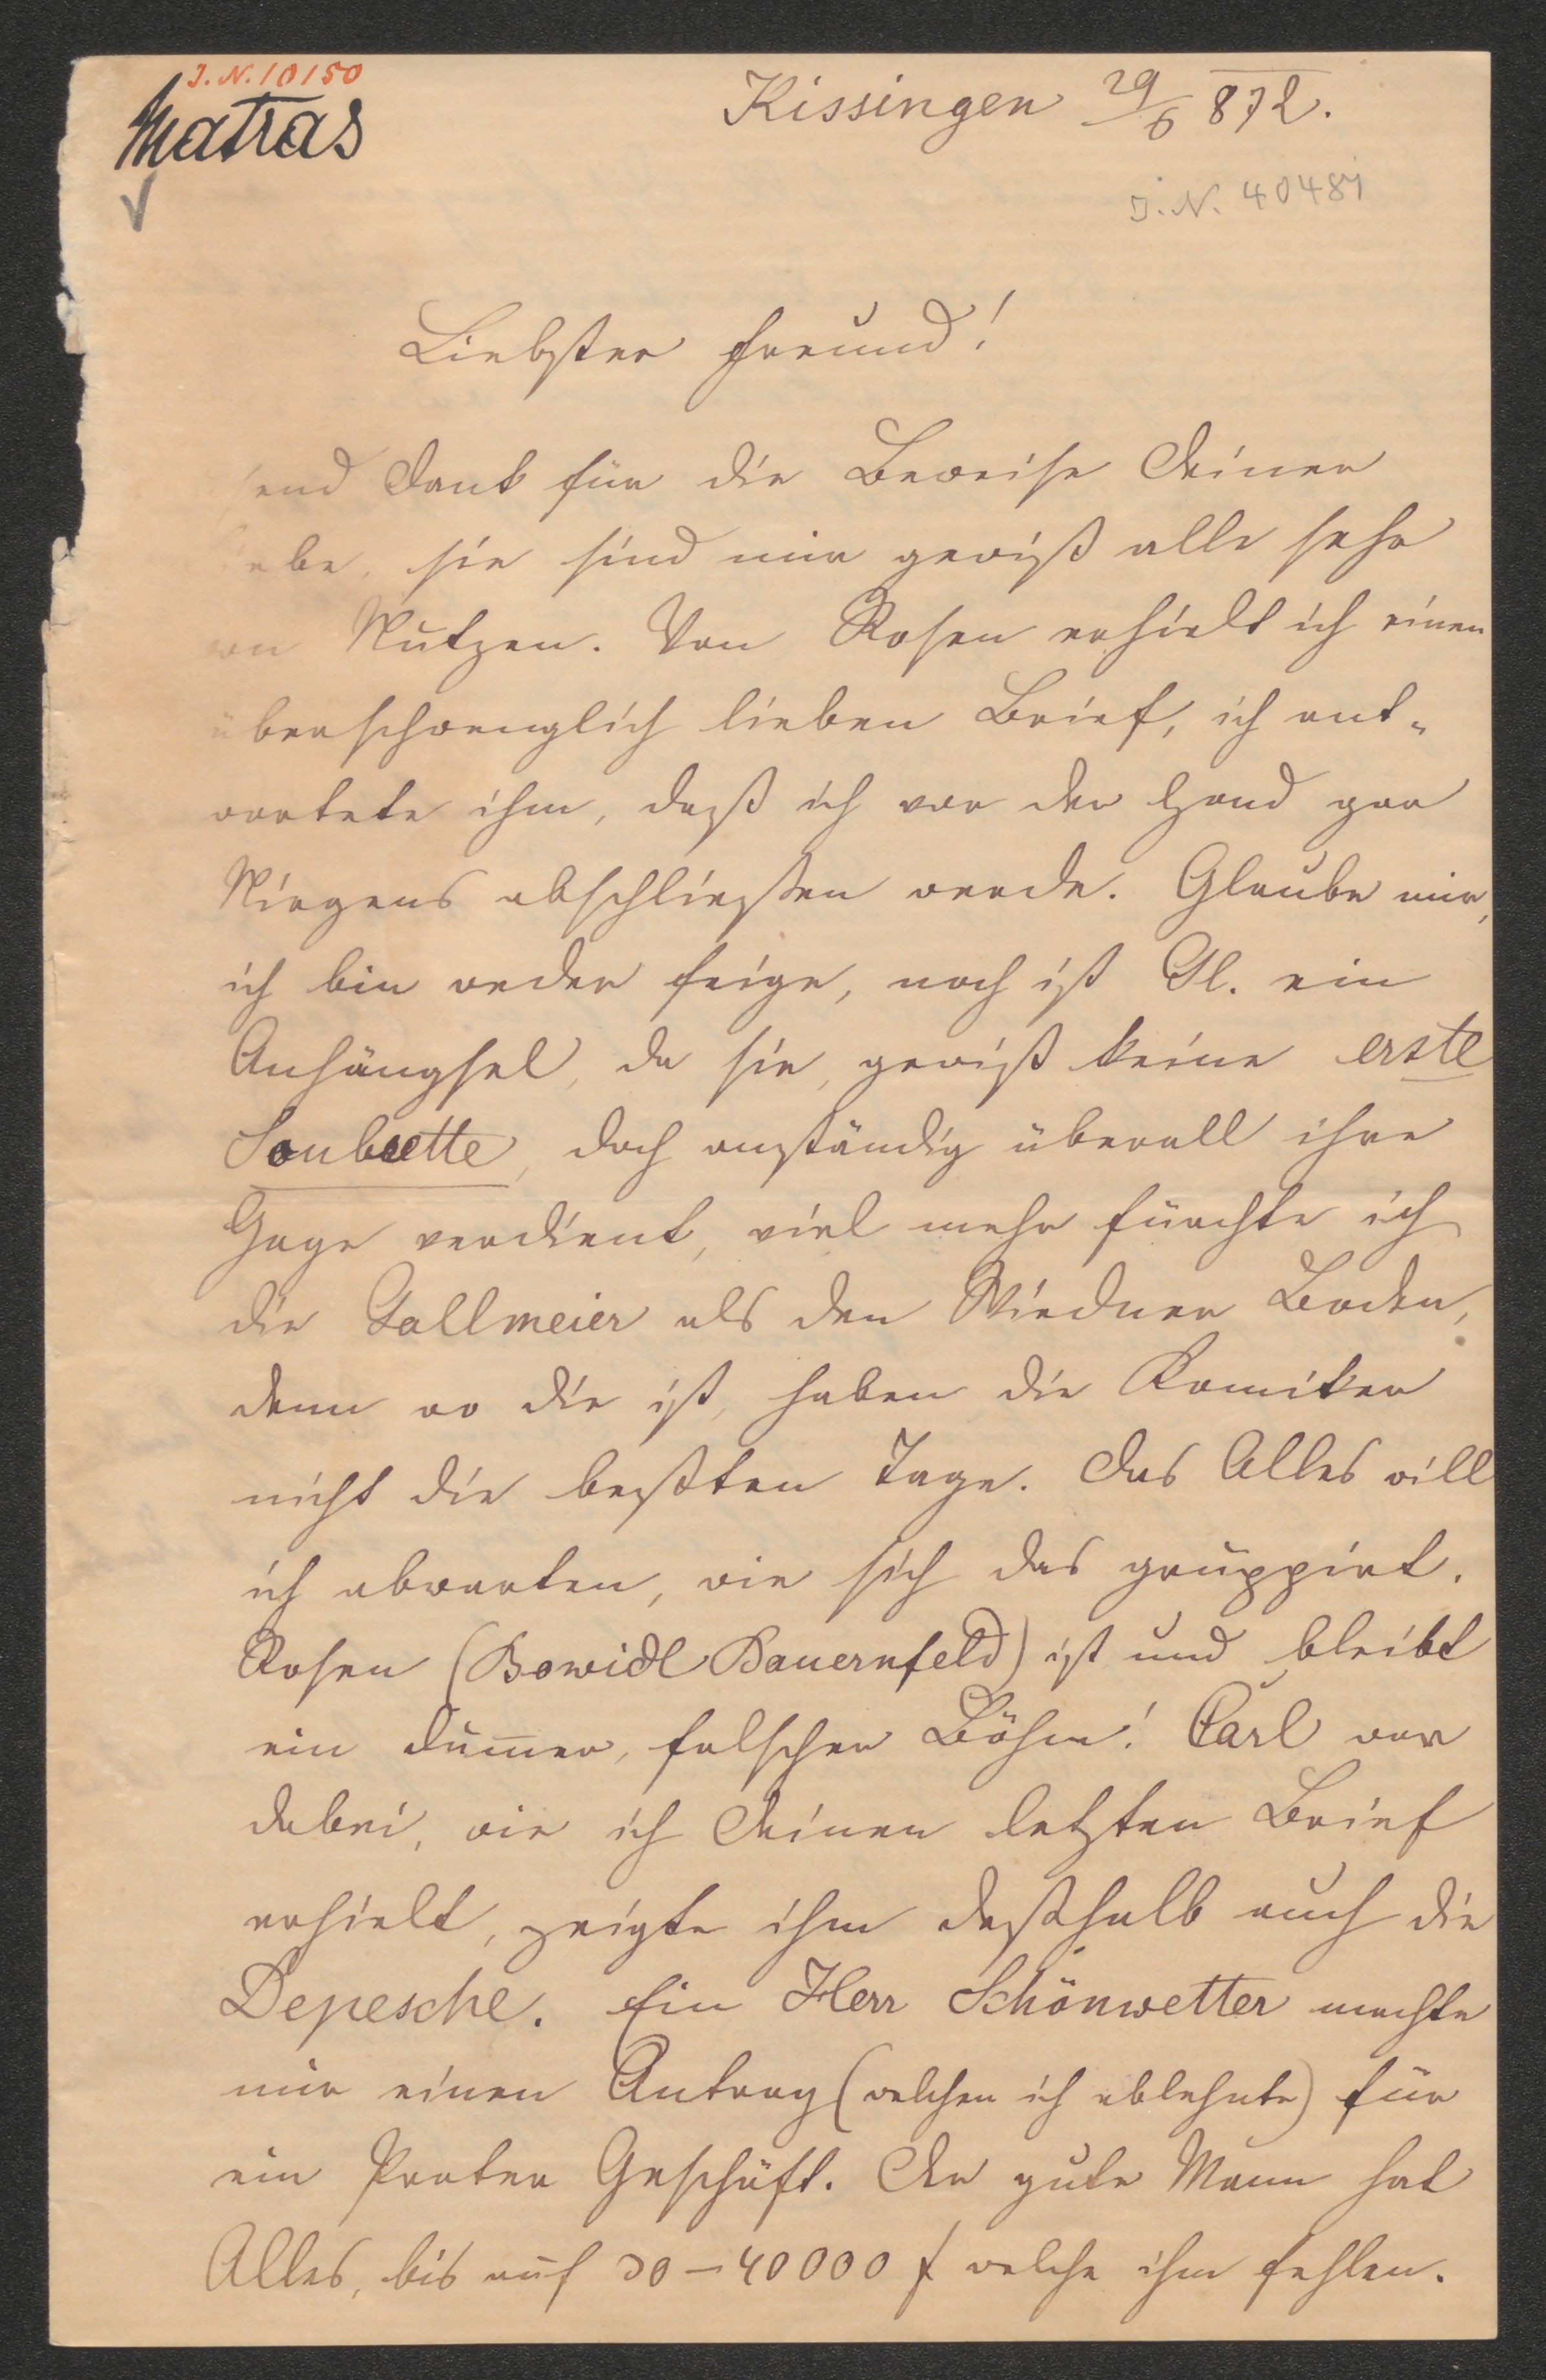 J.N. 10150
Matras
Kissingen 29/6 872.
J.N. 40489
Liebster Freund!
send Dank für die Beweise Deiner
iebe, sie sind mir gewiß alle sehr
von Nutzen. Von Rosen erhielt ich einen
überschwenglich lieben Brief, ich ant-
wortete ihm, daß ich vor der Hand gar
Nirgens abschließen werde. Glaube mir,
ich bin weder feige, noch ist Gl. ein
Anhängsel, da sie, gewiß keine erste
Soubrette, doch anständig überall ihre
Gage verdient, viel mehr fürchte ich
die Gallmeier als den Wiedner Boden,
denn wo die ist, haben die Komiker
nicht die beßten Tage. Das Alles will
ich abwarten, wie sich das gruppirt.
Rosen (Bowidl Bauernfeld) ist und bleibt
ein dum̄er, falscher Böhm! Carl war
dabei, wie ich Deinen letzten Brief
erhielt, zeigte ihm deßhalb auch die
Depesche. Ein Herr Schönwetter machte
mir einen Antrag (welchen ich ablehnte) für
ein Prater Geschäft. Der gute Mann hat
Alles, bis auf 30–40000 f welche ihm fehlen.